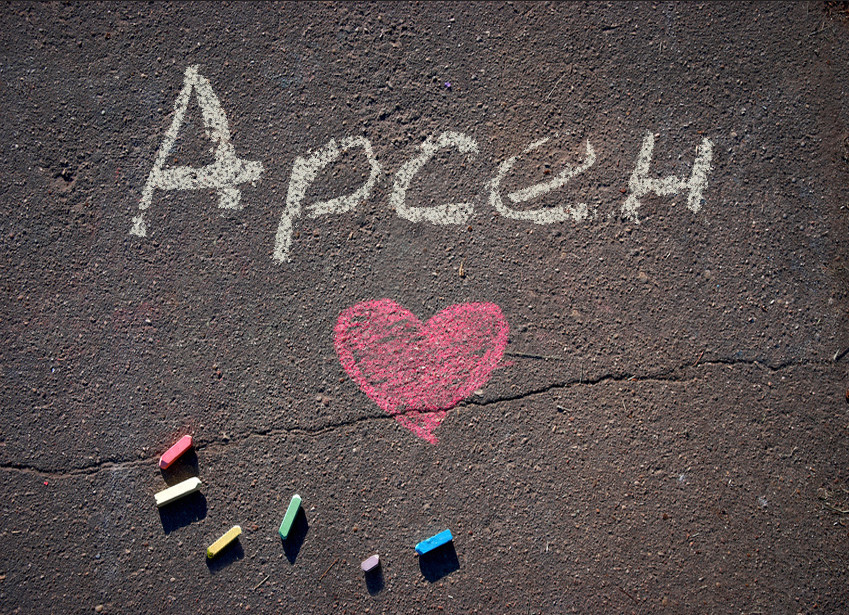 Арсен